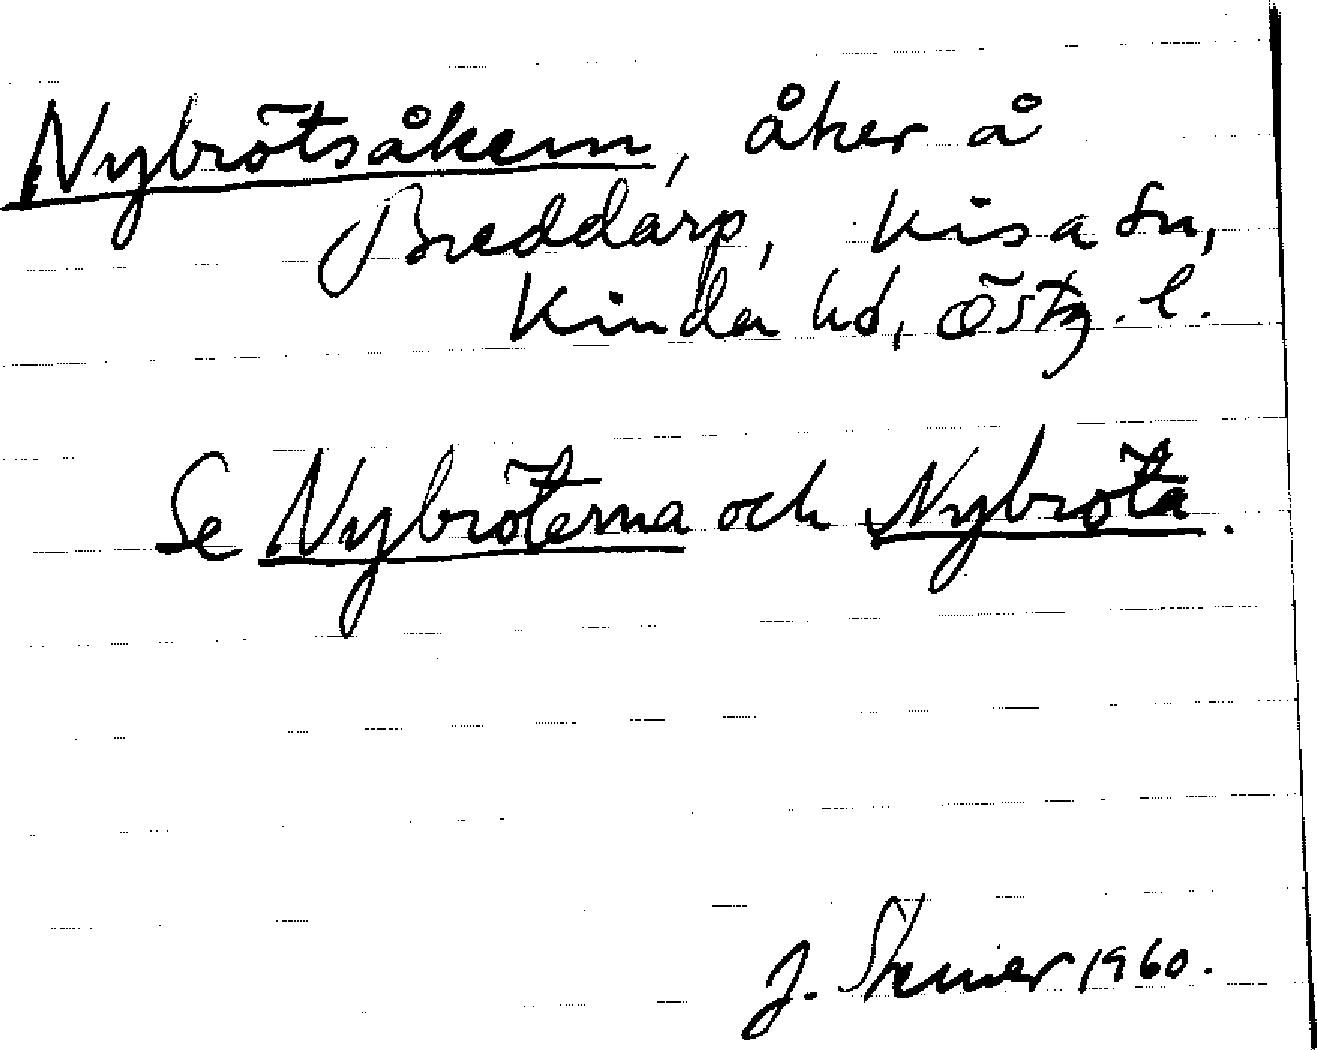 Nybrötsåkern, åker å
Breddarp, Kisa sn,
Kinda hd, Östg. l.
Se Nybröterna och Nybröta.
J. Steiner 1960.